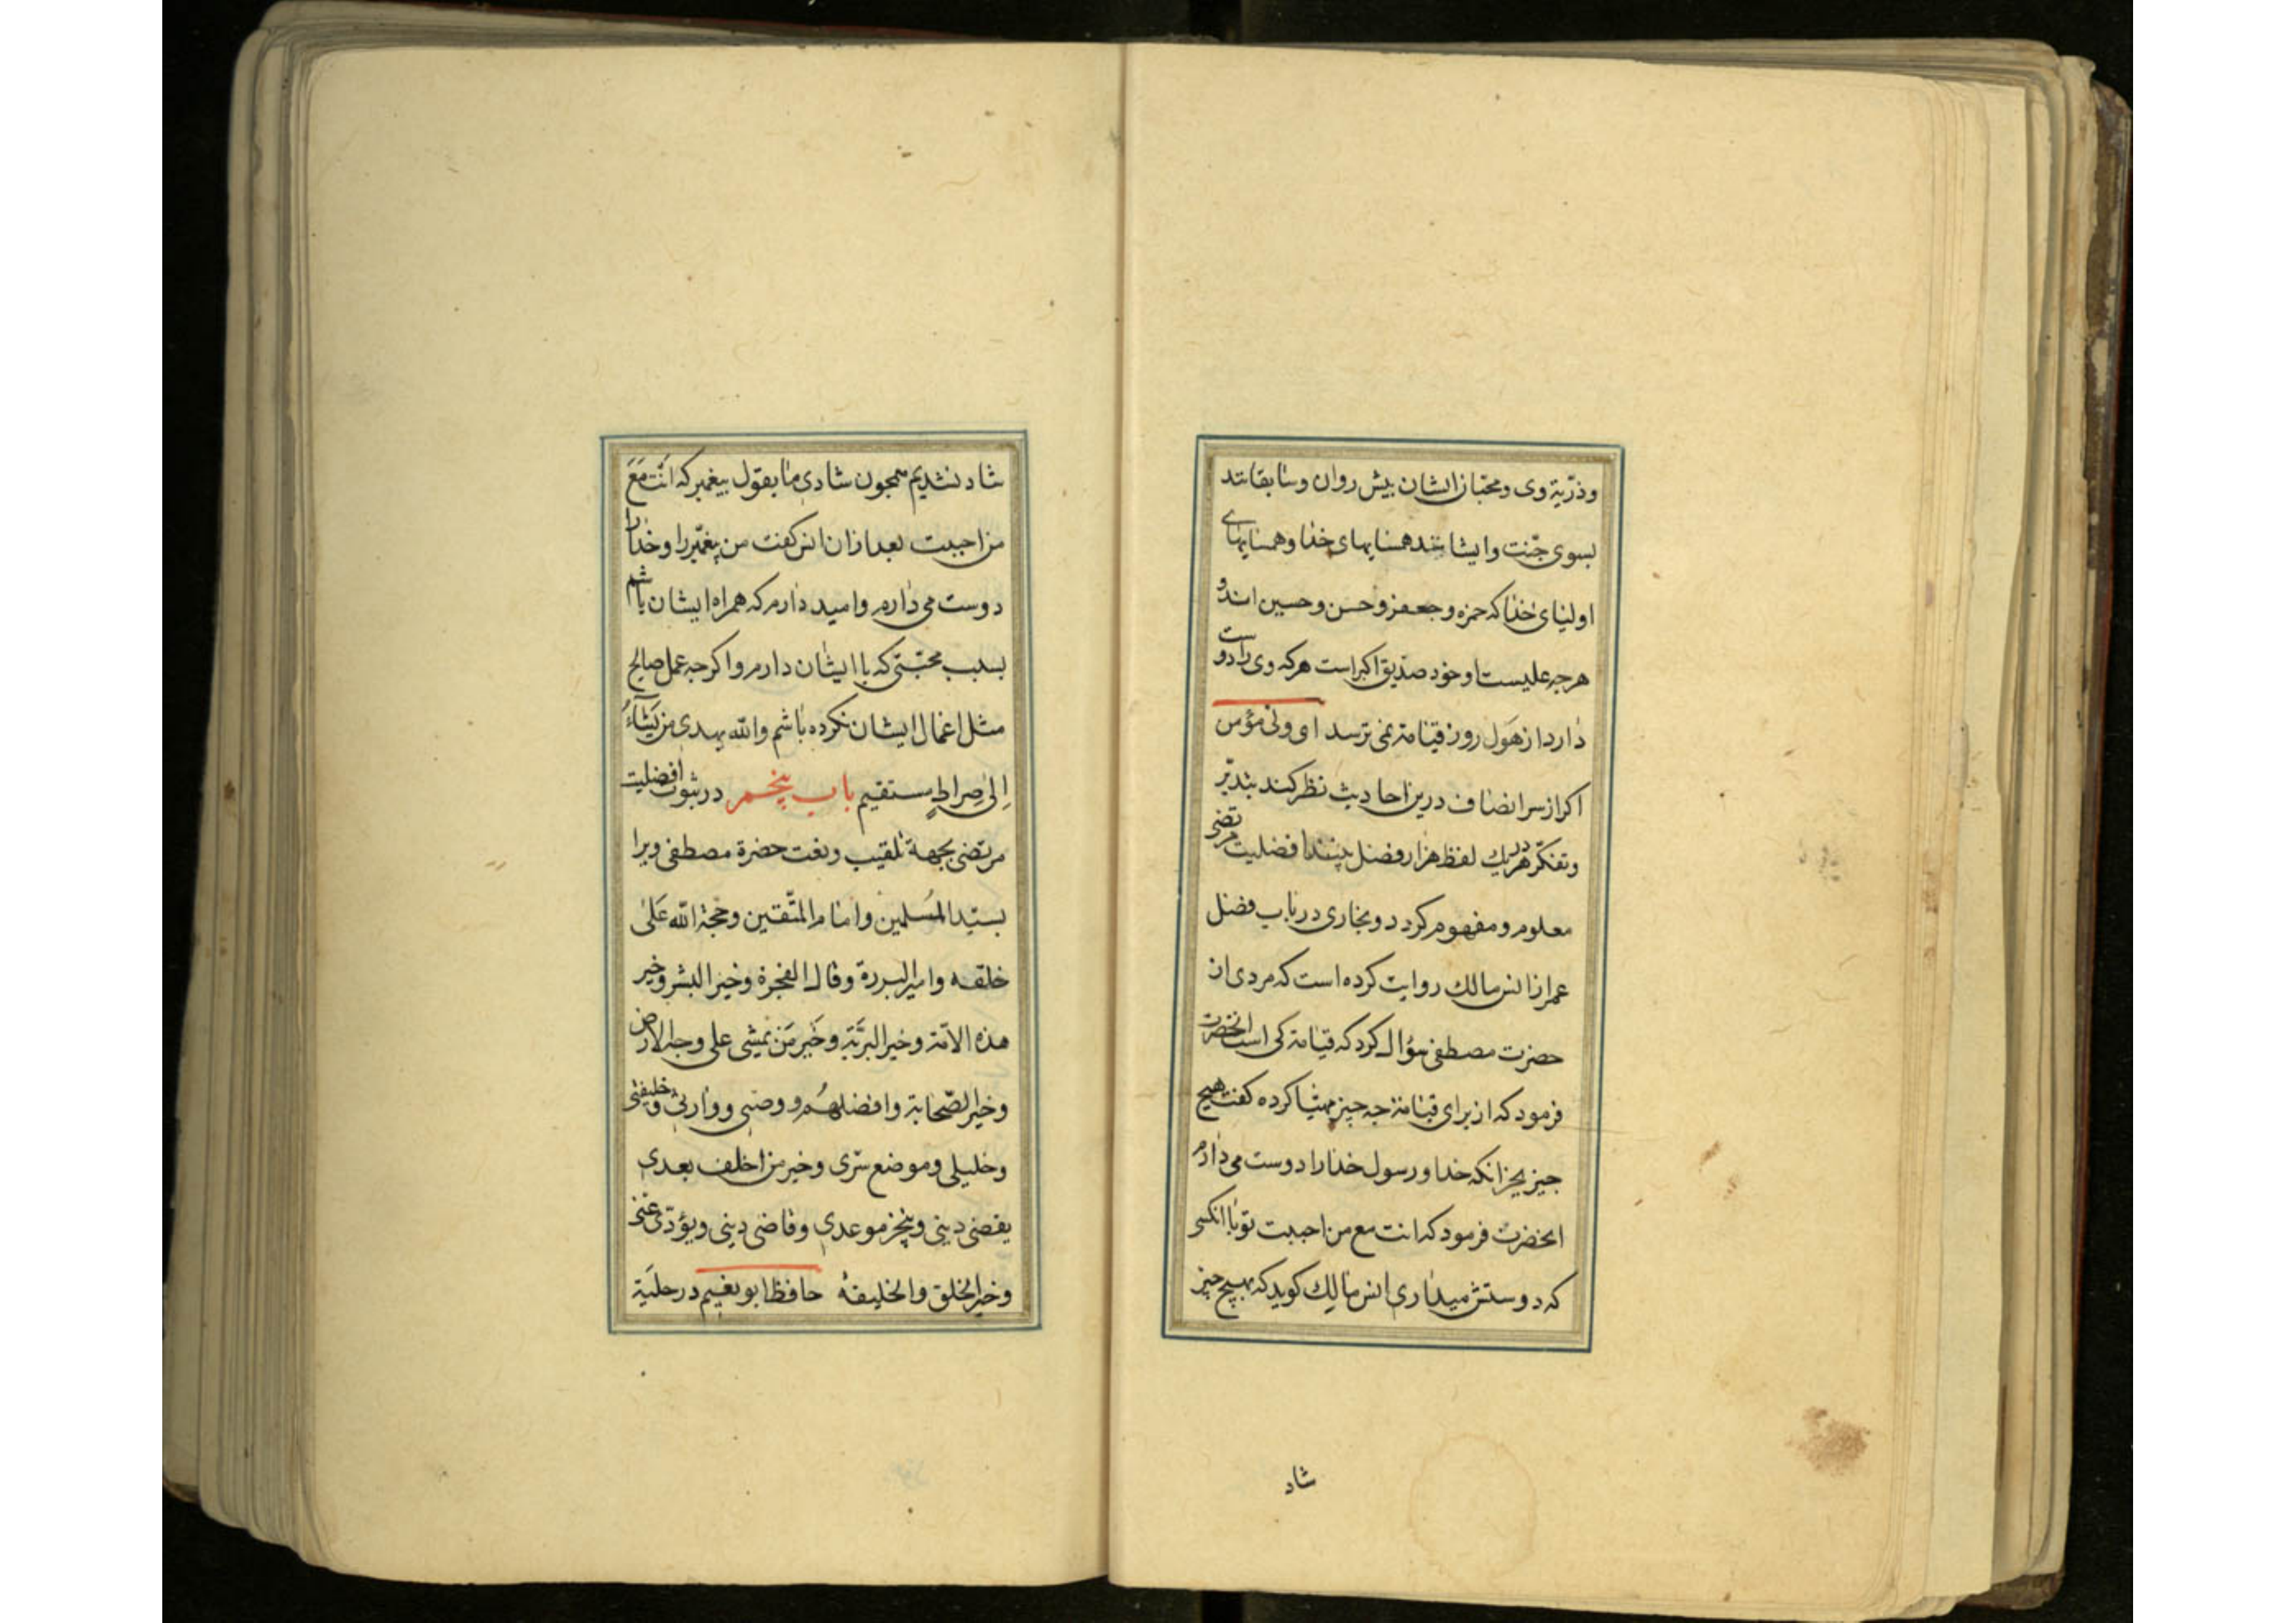 وذرّیة وی ومحبّان ایشان پیش روان وسابقانند
بسوی جنّت وایشانند همسایهای خدا وهمسایهای
اولیای خدا که حمزه وجعفر وحسن وحسین اند و
هرجه علیست او خود صدّیق اکبر است هرکه وی را دوست
دارد از هَول روز قیامة نمی ترسد ای ولی مؤمن
اکر از سر انصاف درین احادیث نظر کند بتدبّر
وتفکّر در هریك لفظ هزار فضل بیند افضلیت مرتضی
معلوم ومفهوم کردد وبخاری در باب فضل
عمر از انس مالك روایت کرده است که مردی از
حضرت مصطفی سؤال کرد که قیامة کی است انحضرت
فرمود که از برای قیامة جه جیز مهیّا کرده کفت هیج
جیز بجز انکه خدا ورسول خدا را دوست می دارم
انحضرت فرمود که انت مع من احببت تو با انکسی
که دوستش میداری انس مالِك کوید که بهیج جیز
شاد
شاد نشدیم همجون شادی ما بقول پیغمبر که اَنْتَ مَعَ
من احببت بعد از ان انس کفت من پیغمّبر را وخدا را
دوست می دارم وامید دارم که همراه ایشان باشم
بسبب محبّتی که با ایشان دارم واکرجه عمل صالح
مثل اعمال ایشان نکرده باشم والله یهدی من یَشآءُ
اِلی صِراطٍ مستقیم باب پنجم در ثبوت افضلیت
مرتضی بجهة تلقیب ونعت حضرة مصطفی ویرا
بسیّد المُسلمین وامام المتّقین وحجة الله عَلی
خلقه وامیر البررة وقاتل الفجرة وخیر البشر وخیر
هذه الامّة وخیر البریَّة وخَیر مَن یمشی علی وجه الارض
وخیر الصّحابة وافضلهُم ووصیی ووارثی وخلیفتی
وخلیلی وموضع سرّی وخیر من اخلف بعدی
یقضی دینی وینجز موعدی وقاضی دینی ویؤدّی عنّی
وخیر الخلق والخلیفة حافظ ابو نعیم در حلیَة